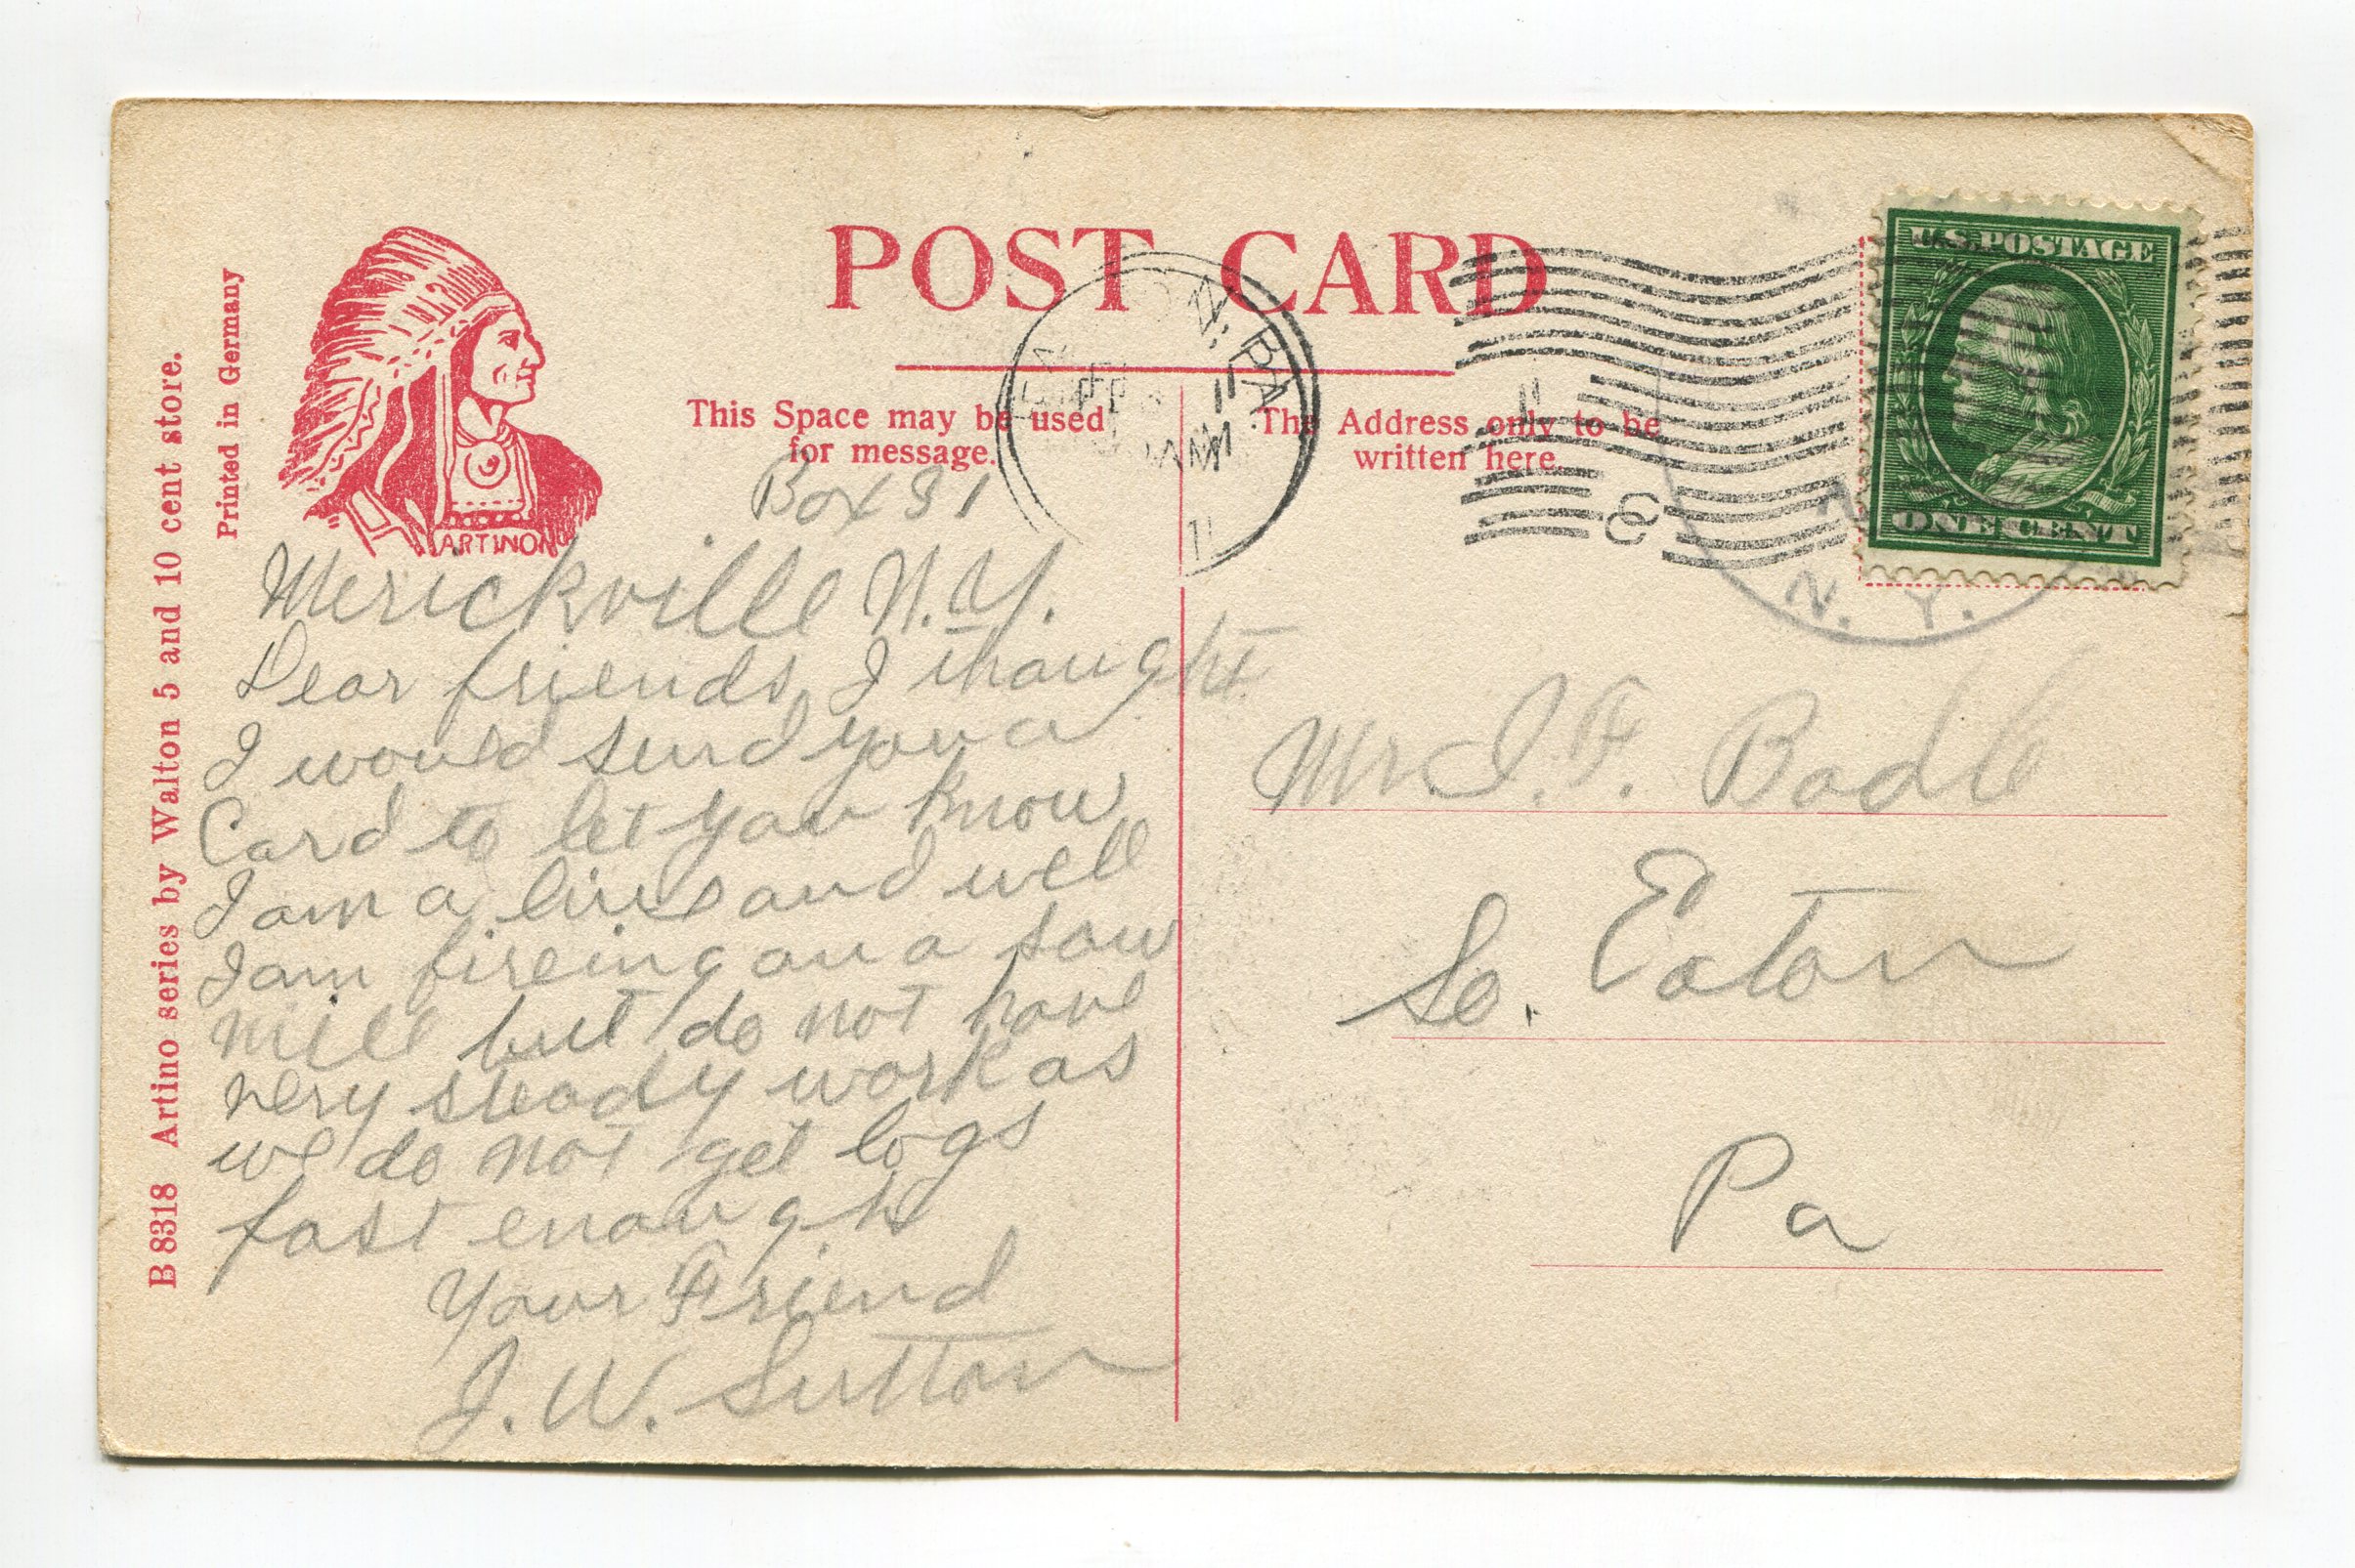 POST CARD
This Space may be used
for message.
The Address only to be
written here.
U.S. POSTAGE
ONE CENT
N. PA.
11
N. Y.
ARTINO
Printed in Germany
B 8318 Artino series by Walton 5 and 10 cent store.
Box 31
Merickville N.Y.
Dear friends, I thought
I would send you a
Card to let you know
I am a live and well
I am fireing on a saw
mill but do not have
very steady work as
we do not get logs
fast enough
Your Friend
J. W. Sutton
Mr. I. F. Bodle
So. Eaton
Pa